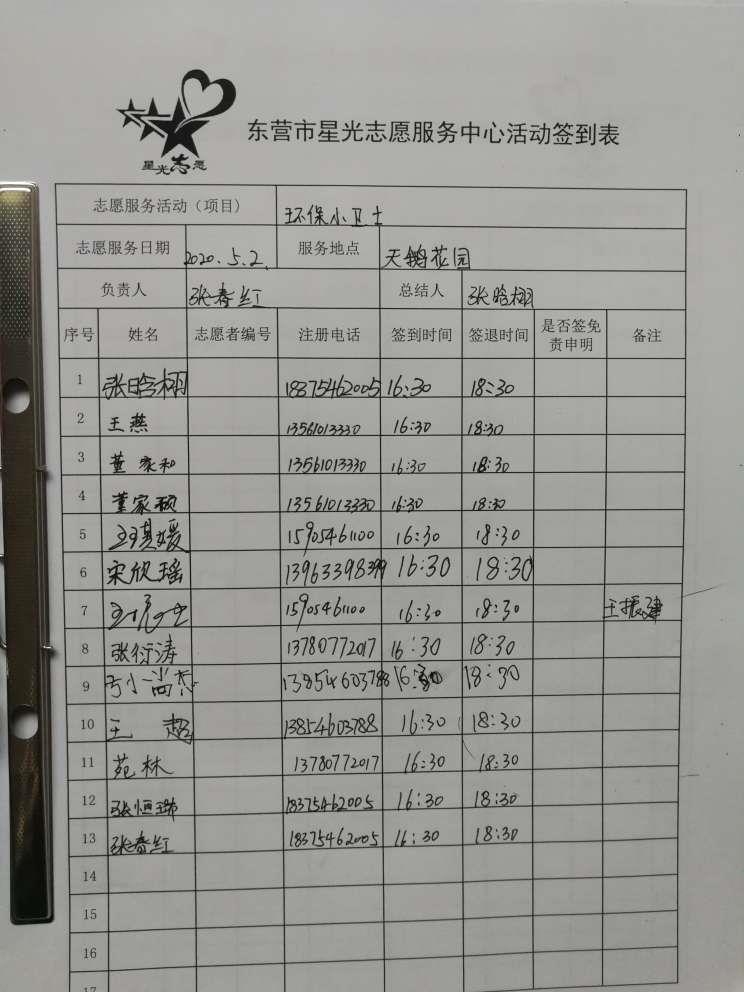 星光志愿
东营市星光志愿服务中心活动签到表
志愿服务活动（项目） 环保小卫士
志愿服务日期 2020.5.2. 服务地点 天鹅花园
负责人 张春红 总结人 张晗栩
序号 姓名 志愿者编号 注册电话 签到时间 签退时间 是否签免责申明 备注
1 张晗栩 18375462005 16:30 18:30
2 王燕 13561013330 16:30 18:30
3 董家和 13561013330 16:30 18:30
4 董家硕 13561013330 16:30 18:30
5 王琪媛 15905461100 16:30 18:30
6 宋欣瑶 13963398399 16:30 18:30
7 15905461100 16:30 18:30 王振建
8 张衍涛 13780772017 16:30 18:30
9 13854603788 16:30 18:30
10 王超 13854603788 16:30 18:30
11 苑林 13780772017 16:30 18:30
12 张恒瑞 18375462005 16:30 18:30
13 张春红 18375462005 16:30 18:30
14
15
16
17